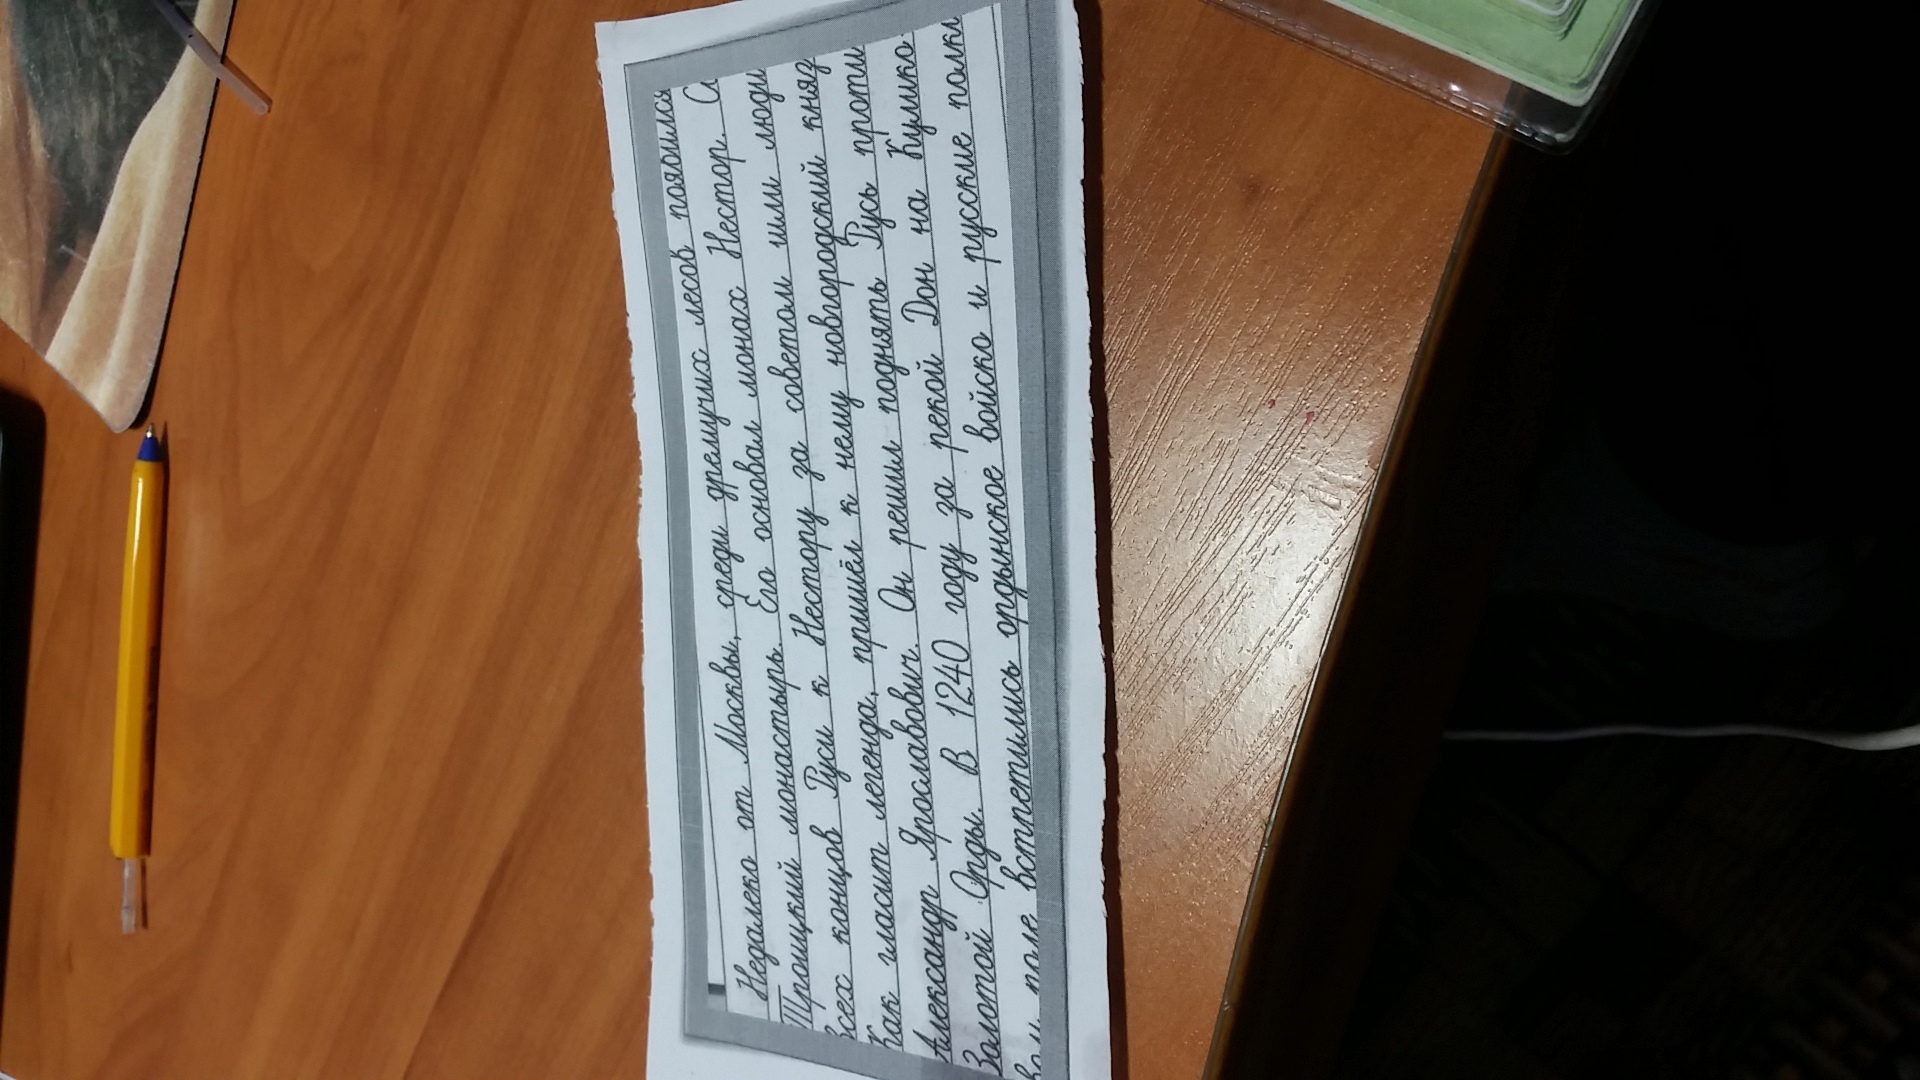 Недалеко от Москвы, среди дремучих лесов появился
Троицкий монастырь. Его основал монах Нестор. Со
всех концов Руси к Нестору за советом шли люди
Как гласит легенда, пришёл к нему новгородский княз
Александр Ярославович. Он решил поднять Русь проти
Золотой Орды. В 1240 году за рекой Дон на Кулико-
вом поле встретились ордынское войско и русские полки